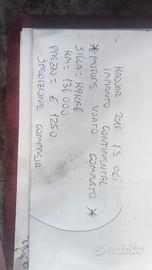 KADJAR 2015 1.5 DCI
IMPIANTO CONTINENTAL
* MOTORE USATO COMPLETO *
SIGLA: K9KE6
KM: 136000
PREZZO: € 1250
SPEDIZIONE COMPRESA
subito